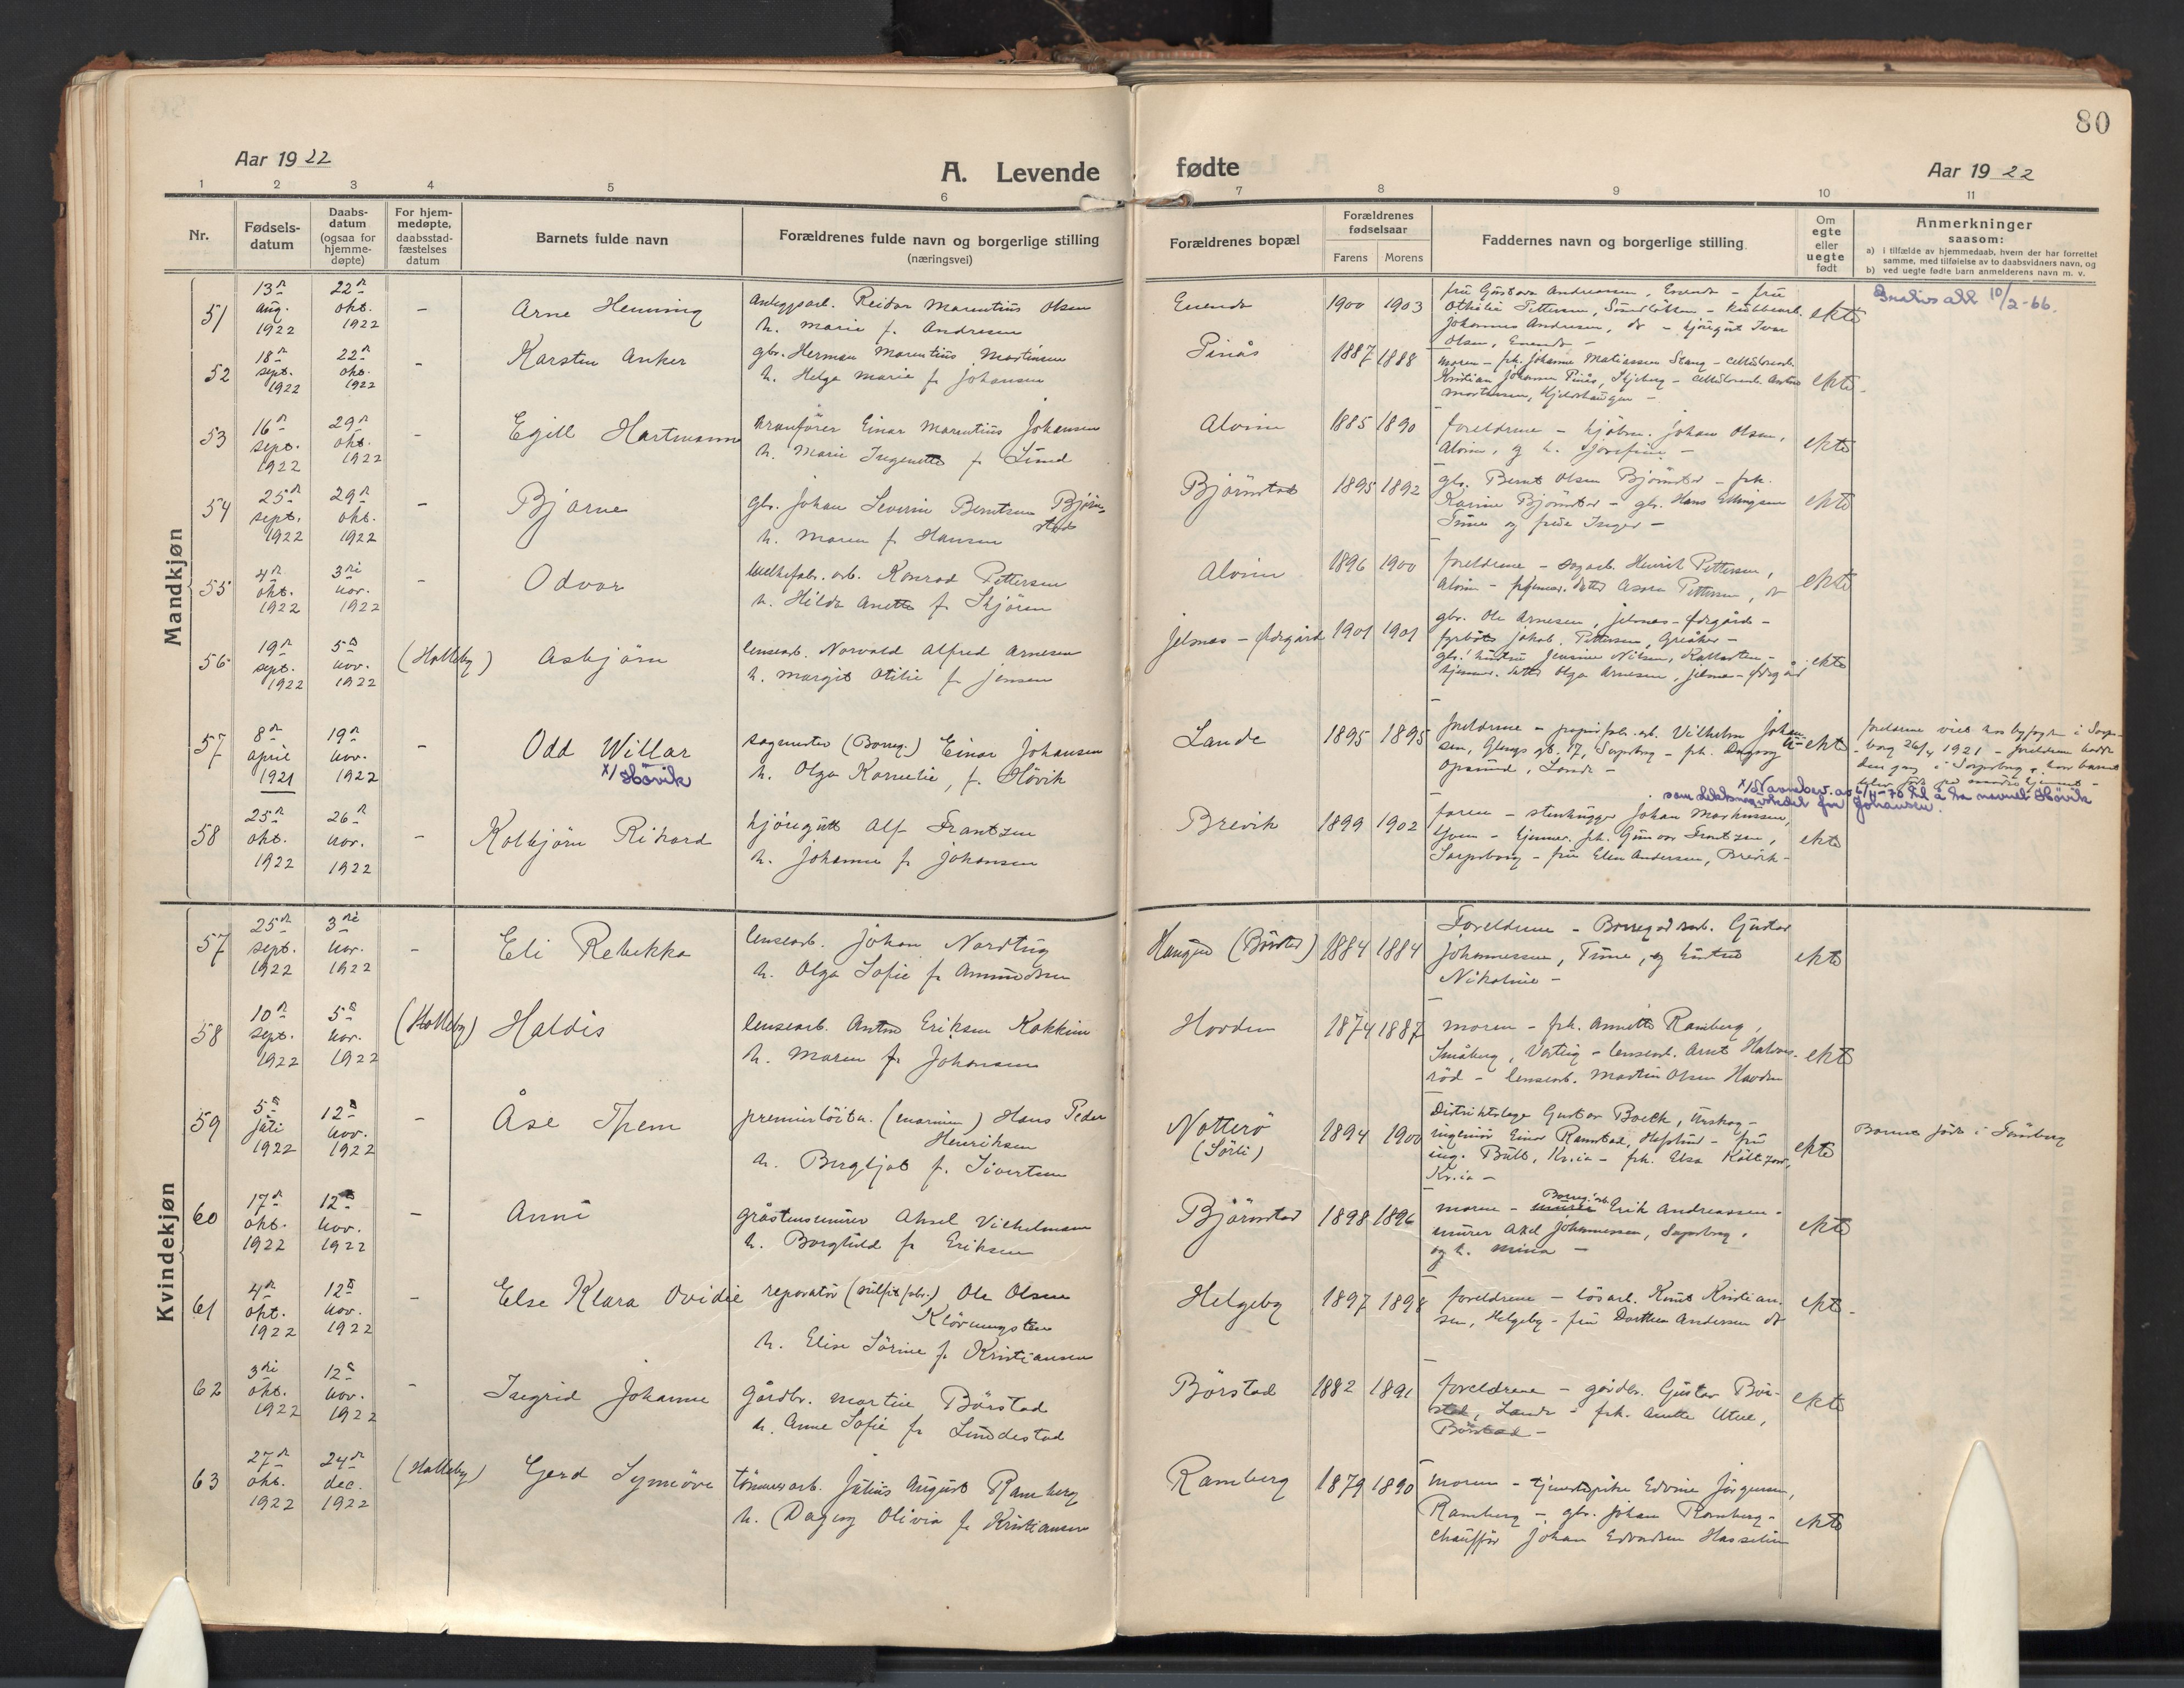 80
Aar 1922
A. Levende
fødte
Aar 1922
1 2 3 4 5 6 7 8 9 10 11
Nr.
Fødsels-
datum
Daabs-
datum
(ogsaa for
hjemme-
døpte)
For hjem-
medøpte,
daabsstad-
fæstelses
datum
Barnets fulde navn
Forældrenes fulde navn og borgerlige stilling
(næringsvei)
Forældrenes bopæl
Forældrenes
fødselsaar
Farens Morens
Faddernes navn og borgerlige stilling
Om
egte
eller
uegte
født
Anmerkninger
saasom:
a) i tilfælde av hjemmedaab, hvem der har forrettet
samme, med tilføielse av to daabsvidners navn, og
b) ved uegte fødte barn anmelderens navn m. v.
Mandkjøn
51
13de aug. 1922
22de okt. 1922
-
Arne Henning
Anleggsarb. Reidar Marentius Olsen
h. Marie f. Andresen
Enende
1900 1903
fru Gustava Andreassen, Enende - fru
Othilie Pettersen,
Johannes Andresen, do - kjøregut Ivar
Olsen, Enende -
ekte
10/2-66.
52
18de sept. 1922
22de okt. 1922
-
Karsten Anker
gbr. Herman Marentius Martinsen
h. Helga Marie f. Johansen
Pinås
1887 1888
moren - frk. Johanne Matiassen Stang - cellulosearb.
Kristian Johansen Pinås, Skjeberg - cellulosearb. Anton
Mortensen,
ekte -
53
16de sept. 1922
29de okt. 1922
-
Egill Hartmann
kranfører Einar Marentius Johansen
h. Marie Ingenette f. Lund
Alvim
1885 1890
foreldrene - kjøbm. Johan Olsen,
Alvim, og h. Josefine -
ekte
54
25de sept. 1922
29de okt. 1922
-
Bjarne
gbr. Johan Severin Berntsen Bjørn-
stad
h. Maren f. Hansen
Bjørnstad
1895 1892
gbr. Bernt Olsen Bjørnstad - frk.
Karine Bjørnstad - gbr. Hans Ellingsen
Tune og frue Inger -
ekte
55
4de okt. 1922
3die nov. 1922
-
Odvar
arb. Konrad Pettersen
h. Hilda Anette f. Skjøren
Alvim
1896 1900
foreldrene - sagarb. Henrik Pettersen,
Alvim - hjemmev. datter Asora Pettersen, do
ekte
56
19de sept. 1922
5te nov. 1922
(Holleby)
Asbjørn
lensearb. Norvald Alfred Arnesen
h. Margit Otilie f. Jensen
Jelsnes - Ødegård
1901 1901
gbr. Ole Arnesen, Jelsnes - Ødegård -
fyrbøter Jakob Pettersen, Greåker -
gbr. hustru Jensine Nilsen,
hjemmev. datter Olga Arnesen, Jelsnes - Ødegård
ekte
57
8de april 1921
19de nov. 1922
-
Odd Willar
x/ Høvik
sagmester (Borreg.) Einar Johansen
h. Olga Kornelie, f. Høvik
Lande
1895 1895
foreldrene - papirfabr. arb. Vilhelm Johan-
sen, Glengs gt. 17, Sarpsborg - frk. Dagny
Opsund, Lande -
ekte
foreldrene viet hos byfogden i Sarps-
borg 26/4 1921 - foreldrene bodde
den gang i Sarpsborg, hvor barnet
blev født på
x/ Navnebev. av 6/4-70 til å ta navnet Høvik
som slektsnavn istedet for Johansen.
58
25de okt. 1922
26de nov. 1922
-
Kolbjørn Rikard
kjøregutt Alf Frantzen
h. Johanne f. Johansen
Brevik
1899 1902
faren - stenhugger Johan Markussen,
Yven - hjemmev. frk. Gunvor Frantzen,
Sarpsborg - fru Elen Andersen, Brevik -
ekte
Kvindekjøn
57
25de sept. 1922
3die nov. 1922
-
Eli Rebekka
lensearb. Johan Nordtug
h. Olga Sofie f. Amundsen
Haugene (Børstad)
1884 1884
Foreldrene - Borregaardsarb. Gustav
Johannessen, Tune, og hustru
Nikoline -
ekte
58
10de sept. 1922
5te nov. 1922
(Holleby)
Haldis
lensearb. Anton Eriksen Kokkim
h. Maren f. Johansen
Hovden
1874 1887
moren - frk. Annette Ramberg,
Småberg, Varteig - lensearb. Arnt Halvors-
rød - lensearb. Martin Olsen Hovden
ekte
59
5te juli 1922
12te nov. 1922
-
Åse Them
premierløitn. (marinen) Hans Peder
Henriksen
h. Bergljot f. Sivertsen
Nøtterø
(Sørli)
1894 1900
Distriktslege Gustav Boeck, Urskog -
ingeniør Einar Ramstad, Hafslund - fru
ing. Bull, Kr.ia - frk. Elsa Koltzow,
Kr.ia -
ekte
Barnet født i Tønsberg
60
17de okt. 1922
12te nov. 1922
-
Anni
gråstensmurer Aksel Vilhelmsen
h. Borghild f. Eriksen
Bjørnstad
1898 1896
moren - Borreg.arb. Erik Andreassen -
murer Axel Johannessen, Sarpsborg,
og h. Mina -
ekte
61
4de okt. 1922
12te nov. 1922
-
Else Klara Ovidie
reparatør (sulfitfabr.) Ole Olsen
Kløvningsten
h. Elise Sørine f. Kristiansen
Helgeby
1897 1898
foreldrene - løsarb. Knut Kristian-
sen, Helgeby - fru Dorthea Andersen do
ekte -
62
3die okt. 1922
12te nov. 1922
-
Ingrid Johanne
Gårdbr. Martin Børstad
h. Anne Sofie f. Lundestad
Børstad
1882 1891
foreldrene - gårdbr. Gustav Bør-
stad, Lande - frk. Anette Utne,
Børstad -
ekte
63
27de okt. 1922
24de dec. 1922
(Holleby)
Gerd Synnøve
tømmerarb. Julius August Ramberg
h. Dagny Olivia f. Kristiansen
Ramberg
1879 1890
moren - tjenestepike Edvine Jørgensen,
Ramberg - gbr. Johan Ramberg -
chauffør Johan Edvardsen Hasselien
ekte